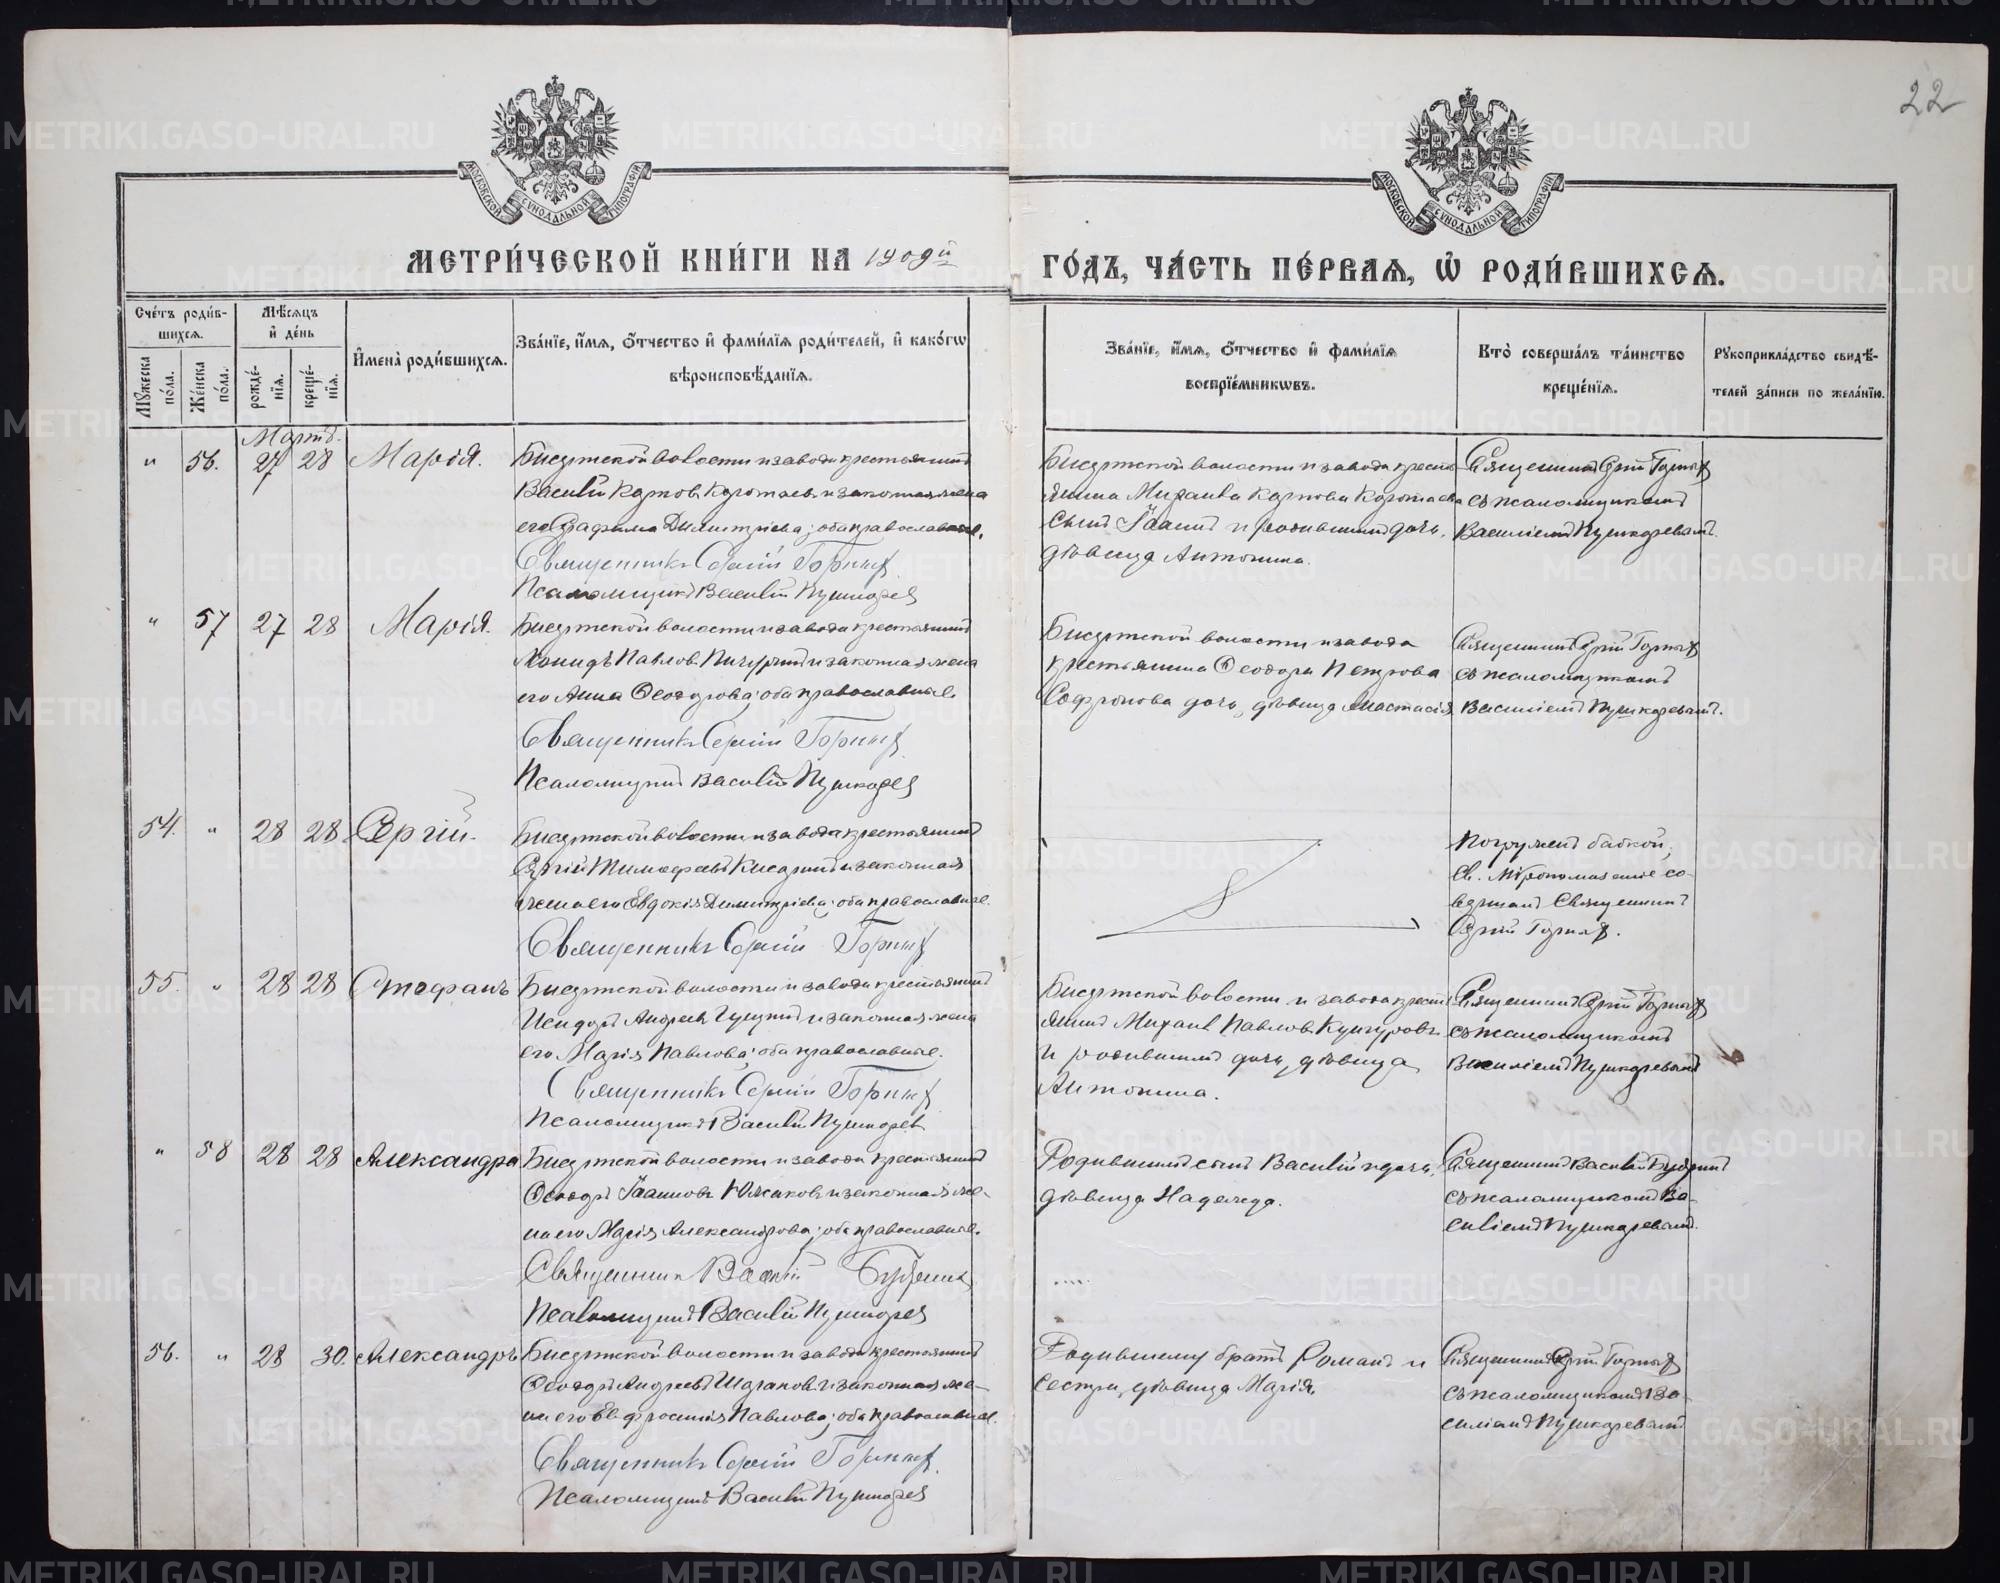 22
МОСКОВСКОЙ СѴНОДАЛЬНОЙ ТИПОГРАФІИ
МОСКОВСКОЙ СѴНОДАЛЬНОЙ ТИПОГРАФІИ
МЕТРИ́ЧЕСКОЙ КНИ́ГИ НА 1909й
ГО́ДЪ, ЧА́СТЬ ПЕ́РВАѦ, Ѡ҆ РОДИ́ВШИХСѦ.
Сче́тъ роди́в-
шихсѧ.
Мꙋ́жеска по́ла.
Же́нска по́ла.
Мѣ́сѧцъ
и҆ де́нь
рожде́-
нїѧ.
креще́-
нїѧ.
И҆мена̀ роди́вшихсѧ.
Зва́нїе, и҆́мѧ, ѻ҆́тчество и҆ фами́лїѧ роди́телей, и҆ како́гѡ
вѣроисповѣ́данїѧ.
Зва́нїе, и҆́мѧ, ѻ҆́тчество и҆ фами́лїѧ
воспрїе́мникѡвъ.
Кто̀ соверша́лъ та́инство
креще́нїѧ.
Рꙋкоприкла́дство свидѣ́-
телей за́писи по жела́нїю.
Марта.
" 56. 27 28 Марія.
Бисертской волости и завода крестьянинъ
Василій Карповъ Коротаевъ и законная жена
его Серафима Димитріева; оба православные.
Священникъ Сергій Горныхъ
Псаломщикъ Василій Пушкаревъ
Бисертской волости и завода кресть-
янина Михаила Карпова Коротаева
сынъ Іоаннъ и родившимъ дочь,
дѣвица Антонина.
Священникъ Сергій Горныхъ
съ псаломщикомъ
Василіемъ Пушкаревымъ.
" 57 27 28 Марія.
Бисертской волости и завода крестьянинъ
Леонидъ Павловъ и законная жена
его Анна Ѳеодорова; оба православные.
Священникъ Сергій Горныхъ
Псаломщикъ Василій Пушкаревъ
Бисертской волости и завода
крестьянина Ѳеодора Петрова
Софронова дочь, дѣвица Анастасія
Священникъ Сергій Горныхъ
съ псаломщикомъ
Василіемъ Пушкаревымъ.
54. " 28 28 Сергій.
Бисертской волости и завода крестьянинъ
Сергій Тимофеевъ и законная
жена его Евдокія Димитріева; оба православные.
Священникъ Сергій Горныхъ
Погруженъ бабкой,
Св. Мѵропомазаніе со-
вершалъ Священникъ
Сергій Горныхъ.
55. " 28 28 Стефанъ
Бисертской волости и завода крестьянинъ
Исидоръ Андреевъ и законная жена
его Марія Павлова; оба православные.
Священникъ Сергій Горныхъ
Псаломщикъ Василій Пушкаревъ
Бисертской волости и завода кресть-
янинъ Михаилъ Павловъ Кунгуровъ
и родившимъ дочь, дѣвица
Антонина.
Священникъ Сергій Горныхъ
съ псаломщикомъ
Василіемъ Пушкаревымъ
" 58 28 28 Александра
Бисертской волости и завода крестьянинъ
Ѳеодоръ Іоанновъ Южаковъ и законная же-
на его Марія Александрова; оба православные.
Священникъ Василій
Псаломщикъ Василій Пушкаревъ
Родившимъ сынъ Василій и дочь,
дѣвица Надежда.
Священникъ Василій
съ псаломщикомъ Ва-
силіемъ Пушкаревымъ.
56. " 28 30. Александръ
Бисертской волости и завода крестьянинъ
Ѳеодоръ Андреевъ Шараповъ и законная же-
на его Евфросинія Павлова; оба православные.
Священникъ Сергій Горныхъ
Псаломщикъ Василій Пушкаревъ
Родившему братъ Романъ и
сестра, дѣвица Марія.
Священникъ Сергій Горныхъ
съ псаломщикомъ Ва-
силіемъ Пушкаревымъ